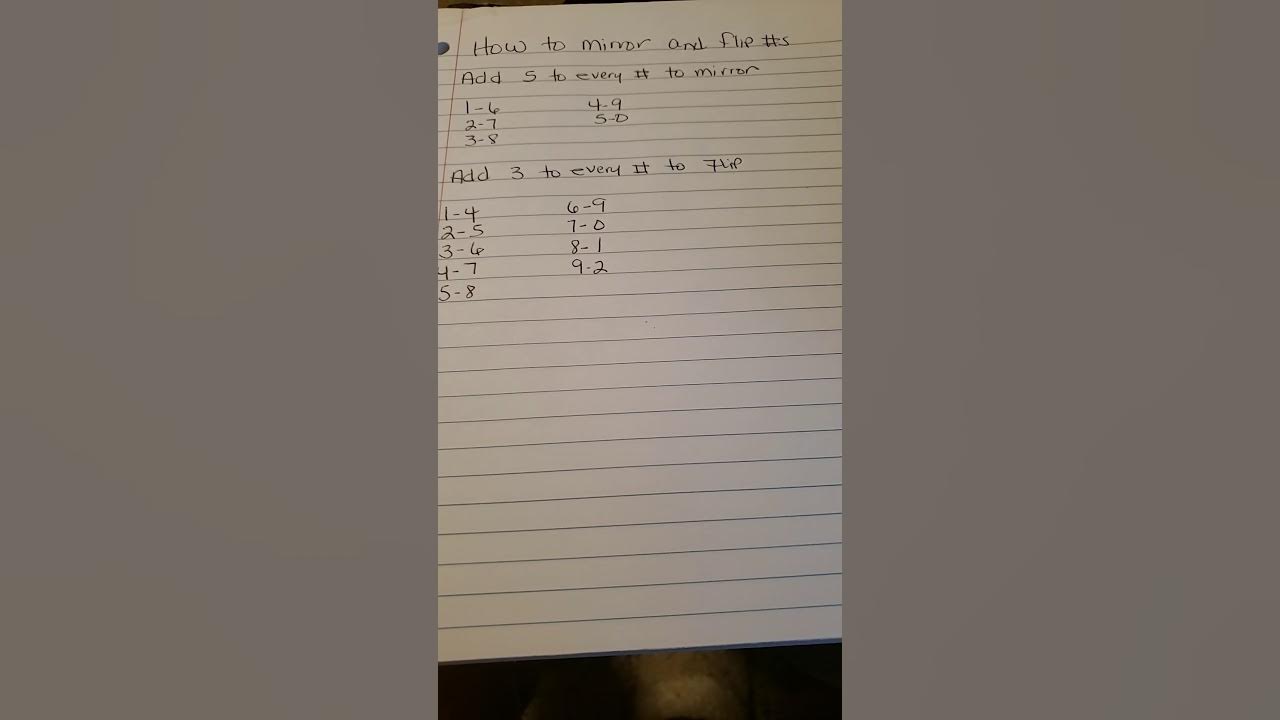 How to mirror and flip #s
Add 5 to every # to mirror
1-6 4-9
2-7 5-0
3-8
Add 3 to every # to Flip
1-4 6-9
2-5 7-0
3-6 8-1
4-7 9-2
5-8